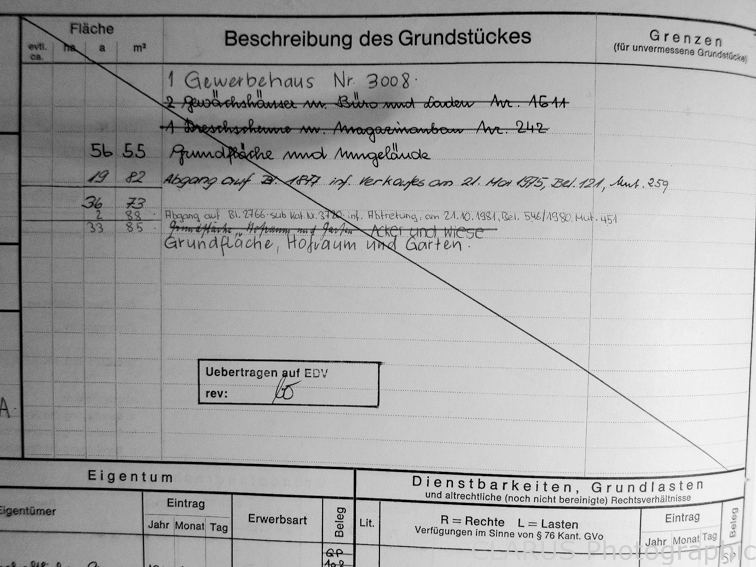 Fläche
Beschreibung des Grundstückes
Grenzen
(für unvermessene Grundstücke)
evtl. ca. ha a m²
1 Gewerbehaus Nr. 3008.
2 Gewächshäuser m. Büro und Laden Nr. 1611
1 Dreschscheune m. Magazinanbau Nr. 242
56 55 Grundfläche und Umgelände
19 82 Abgang auf Bl. 1877 inf. Verkaufes am 21. Mai 1975, Bel. 121, Mut. 259
36 73
2 88 Abgang auf Bl. 2766 sub Kat. Nr. 3720 inf. Abtretung, am 21.10.1981, Bel. 546/1980 Mut. 451
33 85 Grundfläche, Hofraum und Garten Acker und Wiese
Grundfläche, Hofraum und Garten.
Uebertragen auf EDV
rev:
A.
Eigentum
Dienstbarkeiten, Grundlasten
und altrechtliche (noch nicht bereinigte) Rechtsverhältnisse
Eigentümer
Eintrag
Jahr Monat Tag
Erwerbsart
Beleg
Lit.
R = Rechte L = Lasten
Verfügungen im Sinne von § 76 Kant. GVo
Eintrag
Jahr Monat Tag
Beleg
QP
108
SP
CLARUS Photographic